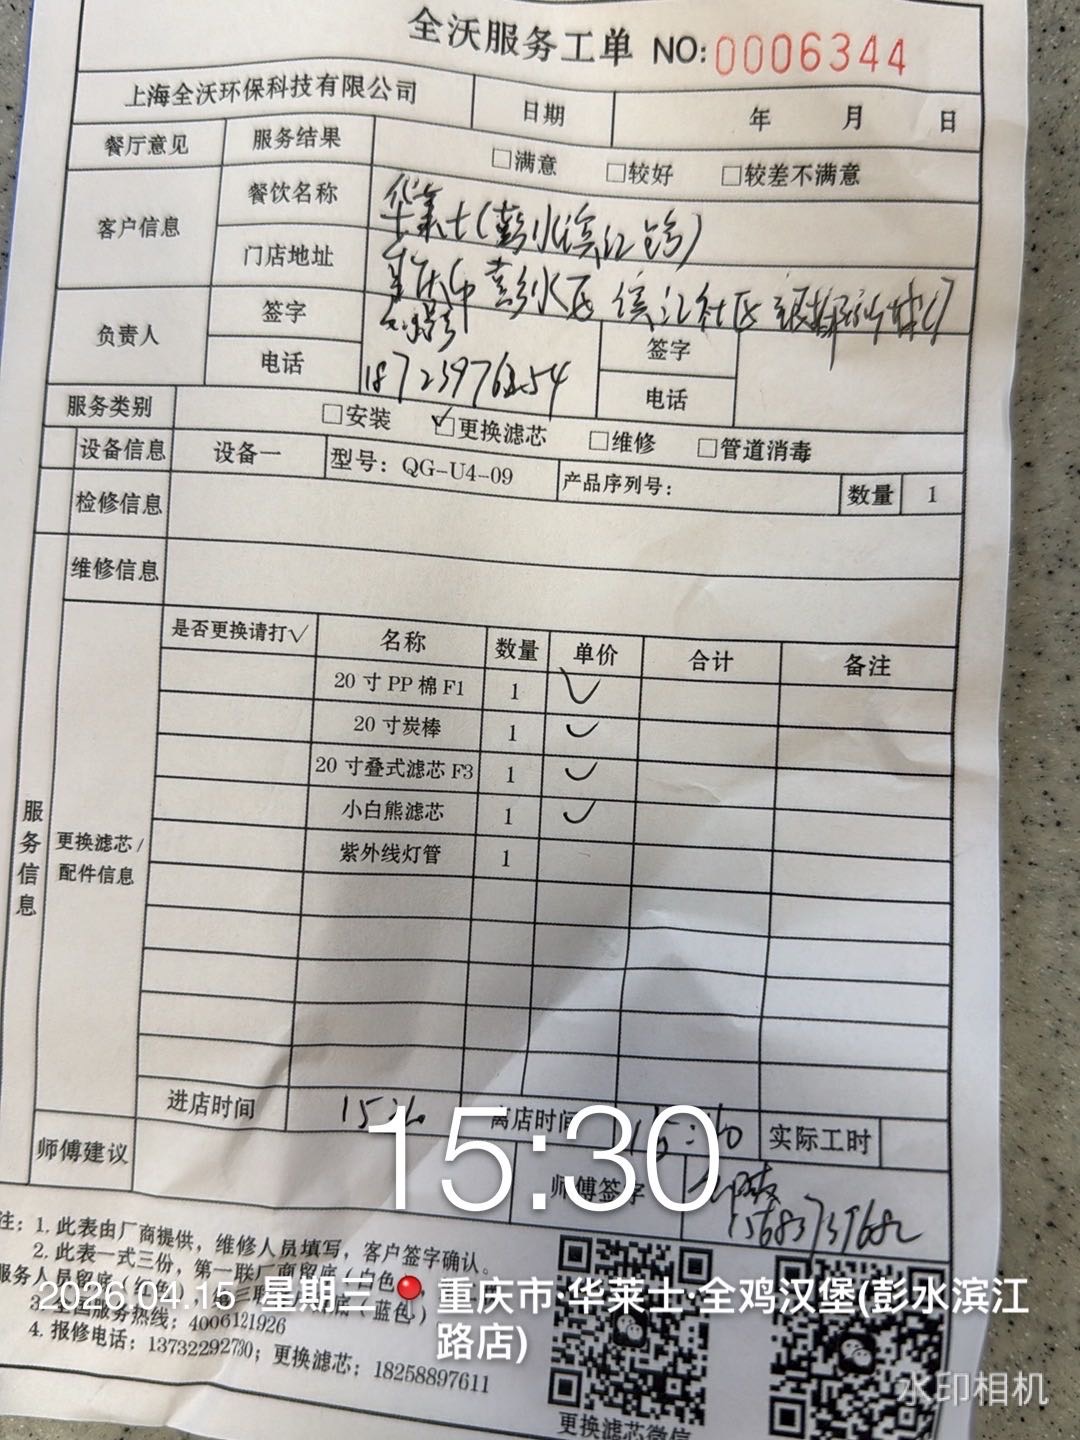 全沃服务工单 NO:0006344
上海全沃环保科技有限公司 日期 年 月 日
餐厅意见 服务结果 □满意 □较好 □较差不满意
客户信息 餐饮名称 华莱士(彭水滨江店)
门店地址 重庆市彭水区滨江社区
负责人 签字 签字
电话 电话
服务类别 □安装 ☑更换滤芯 □维修 □管道消毒
设备信息 设备一 型号：QG-U4-09 产品序列号： 数量 1
检修信息
维修信息
服务信息
更换滤芯/配件信息
是否更换请打√ 名称 数量 单价 合计 备注
20寸PP棉F1 1 √
20寸炭棒 1 √
20寸叠式滤芯F3 1 √
小白熊滤芯 1 √
紫外线灯管 1
进店时间 离店时间 实际工时
师傅建议 师傅签字
15:30
注：1.此表由厂商提供，维修人员填写，客户签字确认。
2.此表一式三份，第一联厂商留底（白色
服务人员留底（红色） 留底（蓝色）
2026.04.15 星期三 重庆市·华莱士·全鸡汉堡(彭水滨江路店)
3.全国服务热线：4006121926
4.报修电话：13732292730；更换滤芯：18258897611
更换滤芯微信
水印相机